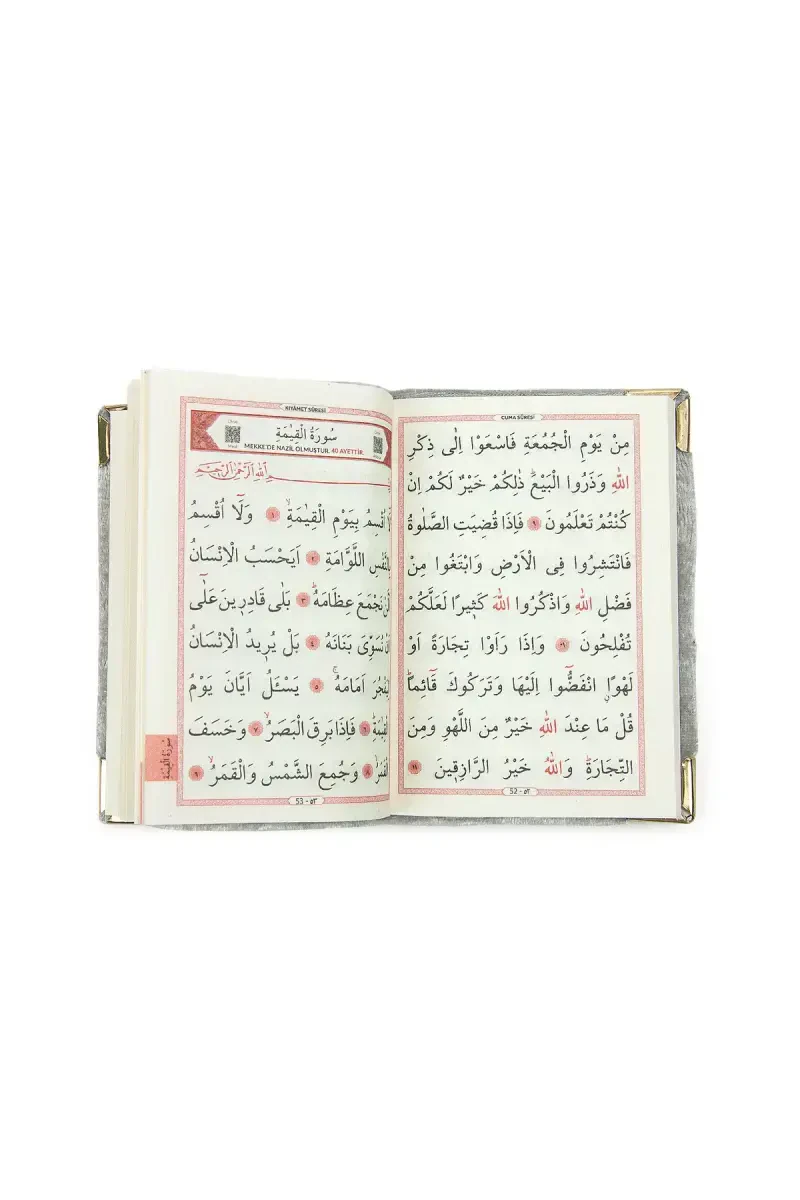 CUMA SÛRESİ
مِنْ يَوْمِ الْجُمُعَةِ فَاسْعَوْا اِلٰى ذِكْرِ
اللّٰهِ وَذَرُوا الْبَيْعَۜ ذٰلِكُمْ خَيْرٌ لَكُمْ اِنْ
كُنْتُمْ تَعْلَمُونَ ٩ فَاِذَا قُضِيَتِ الصَّلٰوةُ
فَانْتَشِرُوا فِى الْاَرْضِ وَابْتَغُوا مِنْ
فَضْلِ اللّٰهِ وَاذْكُرُوا اللّٰهَ كَثِيرًا لَعَلَّكُمْ
تُفْلِحُونَ ١٠ وَاِذَا رَاَوْا تِجَارَةً اَوْ
لَهْوًاۨ انْفَضُّٓوا اِلَيْهَا وَتَرَكُوكَ قَٓائِمًاۜ
قُلْ مَا عِنْدَ اللّٰهِ خَيْرٌ مِنَ اللَّهْوِ وَمِنَ
التِّجَارَةِۜ وَاللّٰهُ خَيْرُ الرَّازِقِينَ ١١
52 - ٥٢
KIYÂMET SÛRESİ
سُورَةُ الْقِيٰمَةِ
MEKKE'DE NAZİL OLMUŞTUR. 40 AYETTİR.
بِسْمِ اللّٰهِ الرَّحْمٰنِ الرَّحِيمِ
اُقْسِمُ بِيَوْمِ الْقِيٰمَةِۙ ١ وَلَٓا اُقْسِمُ
بِالنَّفْسِ اللَّوَّامَةِ ٢ اَيَحْسَبُ الْاِنْسَانُ
نَجْمَعَ عِظَامَهُۜ ٣ بَلٰى قَادِرِينَ عَلٰٓى
نُسَوِّىَ بَنَانَهُ ٤ بَلْ يُرِيدُ الْاِنْسَانُ
لِيَفْجُرَ اَمَامَهُۚ ٥ يَسْـَٔلُ اَيَّانَ يَوْمُ
الْقِيٰمَةِۜ ٦ فَاِذَا بَرِقَ الْبَصَرُۙ ٧ وَخَسَفَ
الْقَمَرُۙ ٨ وَجُمِعَ الشَّمْسُ وَالْقَمَرُۙ ٩
سُورَةُ الْقِيٰمَةِ
53 - ٥٣